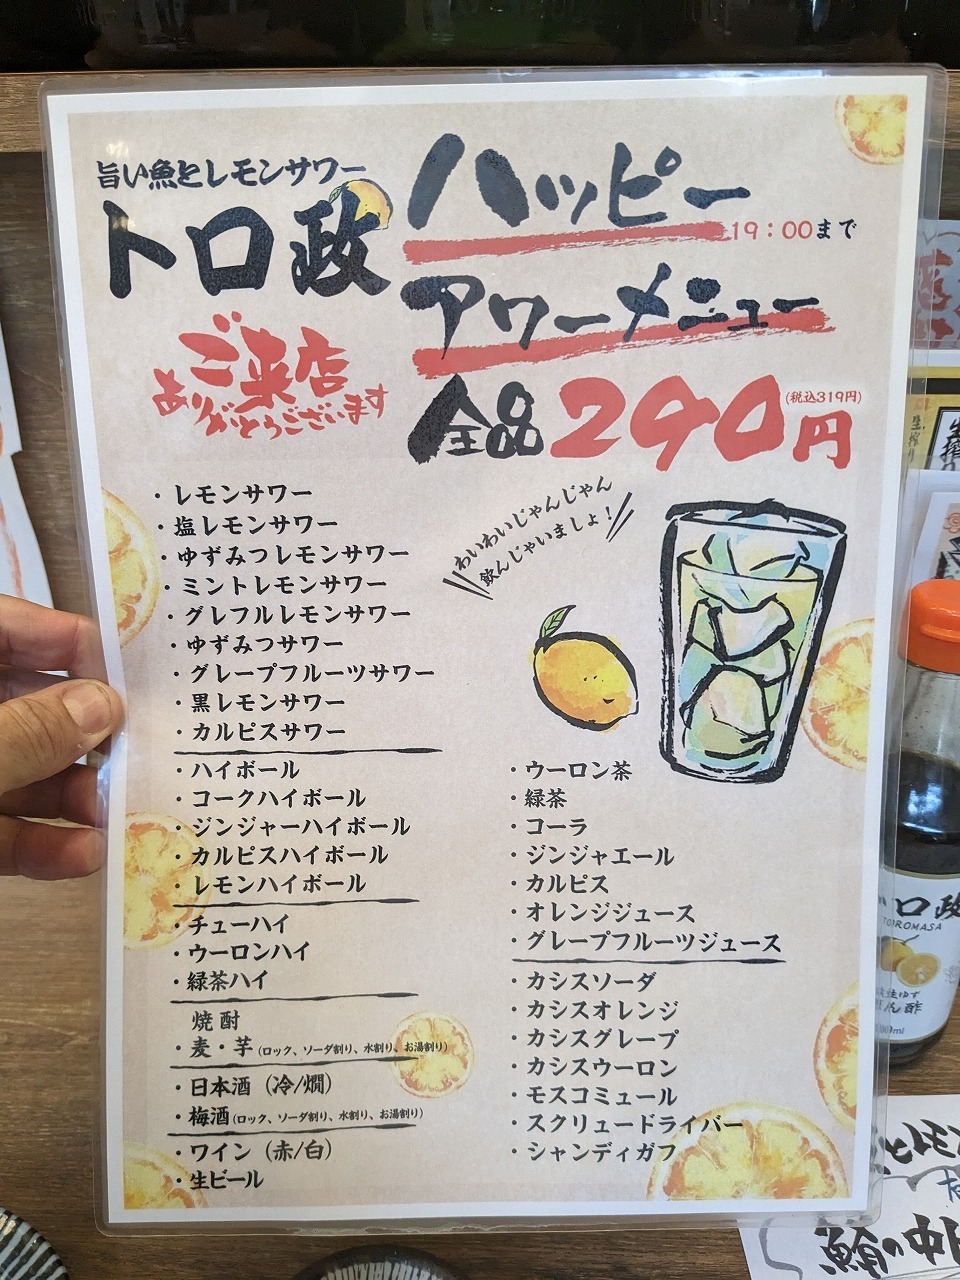 旨い魚とレモンサワー
トロ政
ハッピー
19:00まで
アワーメニュー
ご来店
ありがとうございます
全品290円
(税込319円)
わいわいじゃんじゃん
飲んじゃいましょ!
・レモンサワー
・塩レモンサワー
・ゆずみつレモンサワー
・ミントレモンサワー
・グレフルレモンサワー
・ゆずみつサワー
・グレープフルーツサワー
・黒レモンサワー
・カルピスサワー
・ハイボール
・コークハイボール
・ジンジャーハイボール
・カルピスハイボール
・レモンハイボール
・チューハイ
・ウーロンハイ
・緑茶ハイ
焼酎
・麦・芋(ロック、ソーダ割り、水割り、お湯割り)
・日本酒(冷/燗)
・梅酒(ロック、ソーダ割り、水割り、お湯割り)
・ワイン(赤/白)
・生ビール
・ウーロン茶
・緑茶
・コーラ
・ジンジャエール
・カルピス
・オレンジジュース
・グレープフルーツジュース
・カシスソーダ
・カシスオレンジ
・カシスグレープ
・カシスウーロン
・モスコミュール
・スクリュードライバー
・シャンディガフ
生搾り
ロ政
TOROMASA
ゆず
ん酢
とレモン
鮪の中